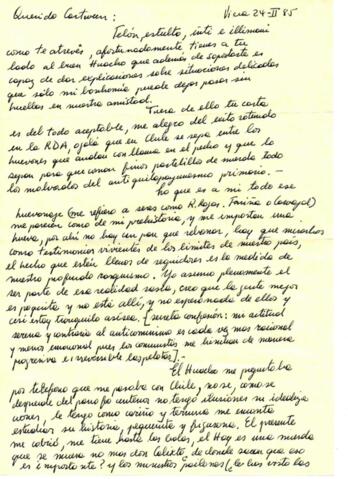 Querido Cartucu: Viena 24-II 85
Telón, estulto, inti e illimani
como te atrevés, afortunadamente tienes a tu
lado al gran Huacho que además de sopadaste es
capaz de dar explicaciones sobre situaciones delicadas
que sólo mi bonhomía puede dejar pasar sin
huellas en nuestra amistad.
Fuera de ello tu carta
es del todo aceptable, me alegro del éxito rotundo
en la RDA, ojalá que en Chile se sepa entre los
huevones que andan con llama en el pecho y que lo
sepan para que coman finos pastelillos de mierda todos
los malvados del antiquilapayunismo primario.-
Lo que es a mi todo ese
huevonaje (me refiero a seres como R. Rojas. Fariña o Carvajal)
me parecen como de mi prehistoria, y me importan una
hueva, por ahí no hay un pan que rebanar, hay que mirarlos
como testimonios vivientes de los límites de nuestro país,
el hecho que estén llenos de seguidores es la medida de
nuestro profundo rasquismo. Yo asumo plenamente el
ser parte de esa realidad rasca, creo que la gente mejor
es poquita, y no está allí, y no espero nada de ellos y
así estoy tranquilo así sea. [secreta confesión: mi actitud
serena y contraria al anticomunismo es cada vez más racional
y menos emocional pues los comunistas me hinchan de manera
progresiva e irreversible las pelotas].-
El Huacho me preguntaba
por teléfono que me pasaba con Chile, no sé, como se
desprende del párrafo anterior no tengo ilusiones ni idealiza
ciones, le tengo como cariño y ternura me encanta
estudiar su historia, pequeñita y bizarra. El presente
me cabrió, me tiene hasta las bolas, el Hoy es una mierda
que se muera no más don Calixto, de donde sacan que eso
es importante? y los ministros poetones (he ahí visto las